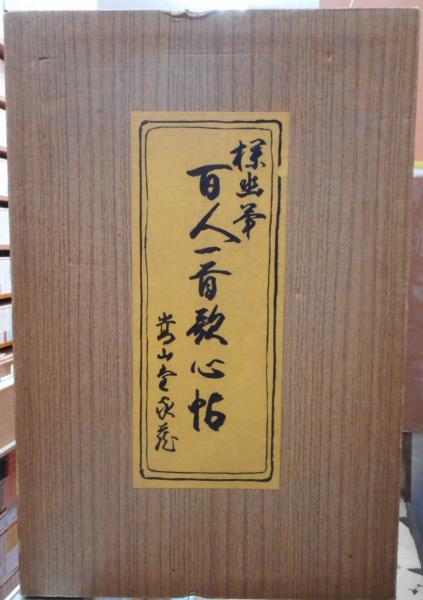 樸幽筆
百人一首歌心帖
嵩山堂家蔵